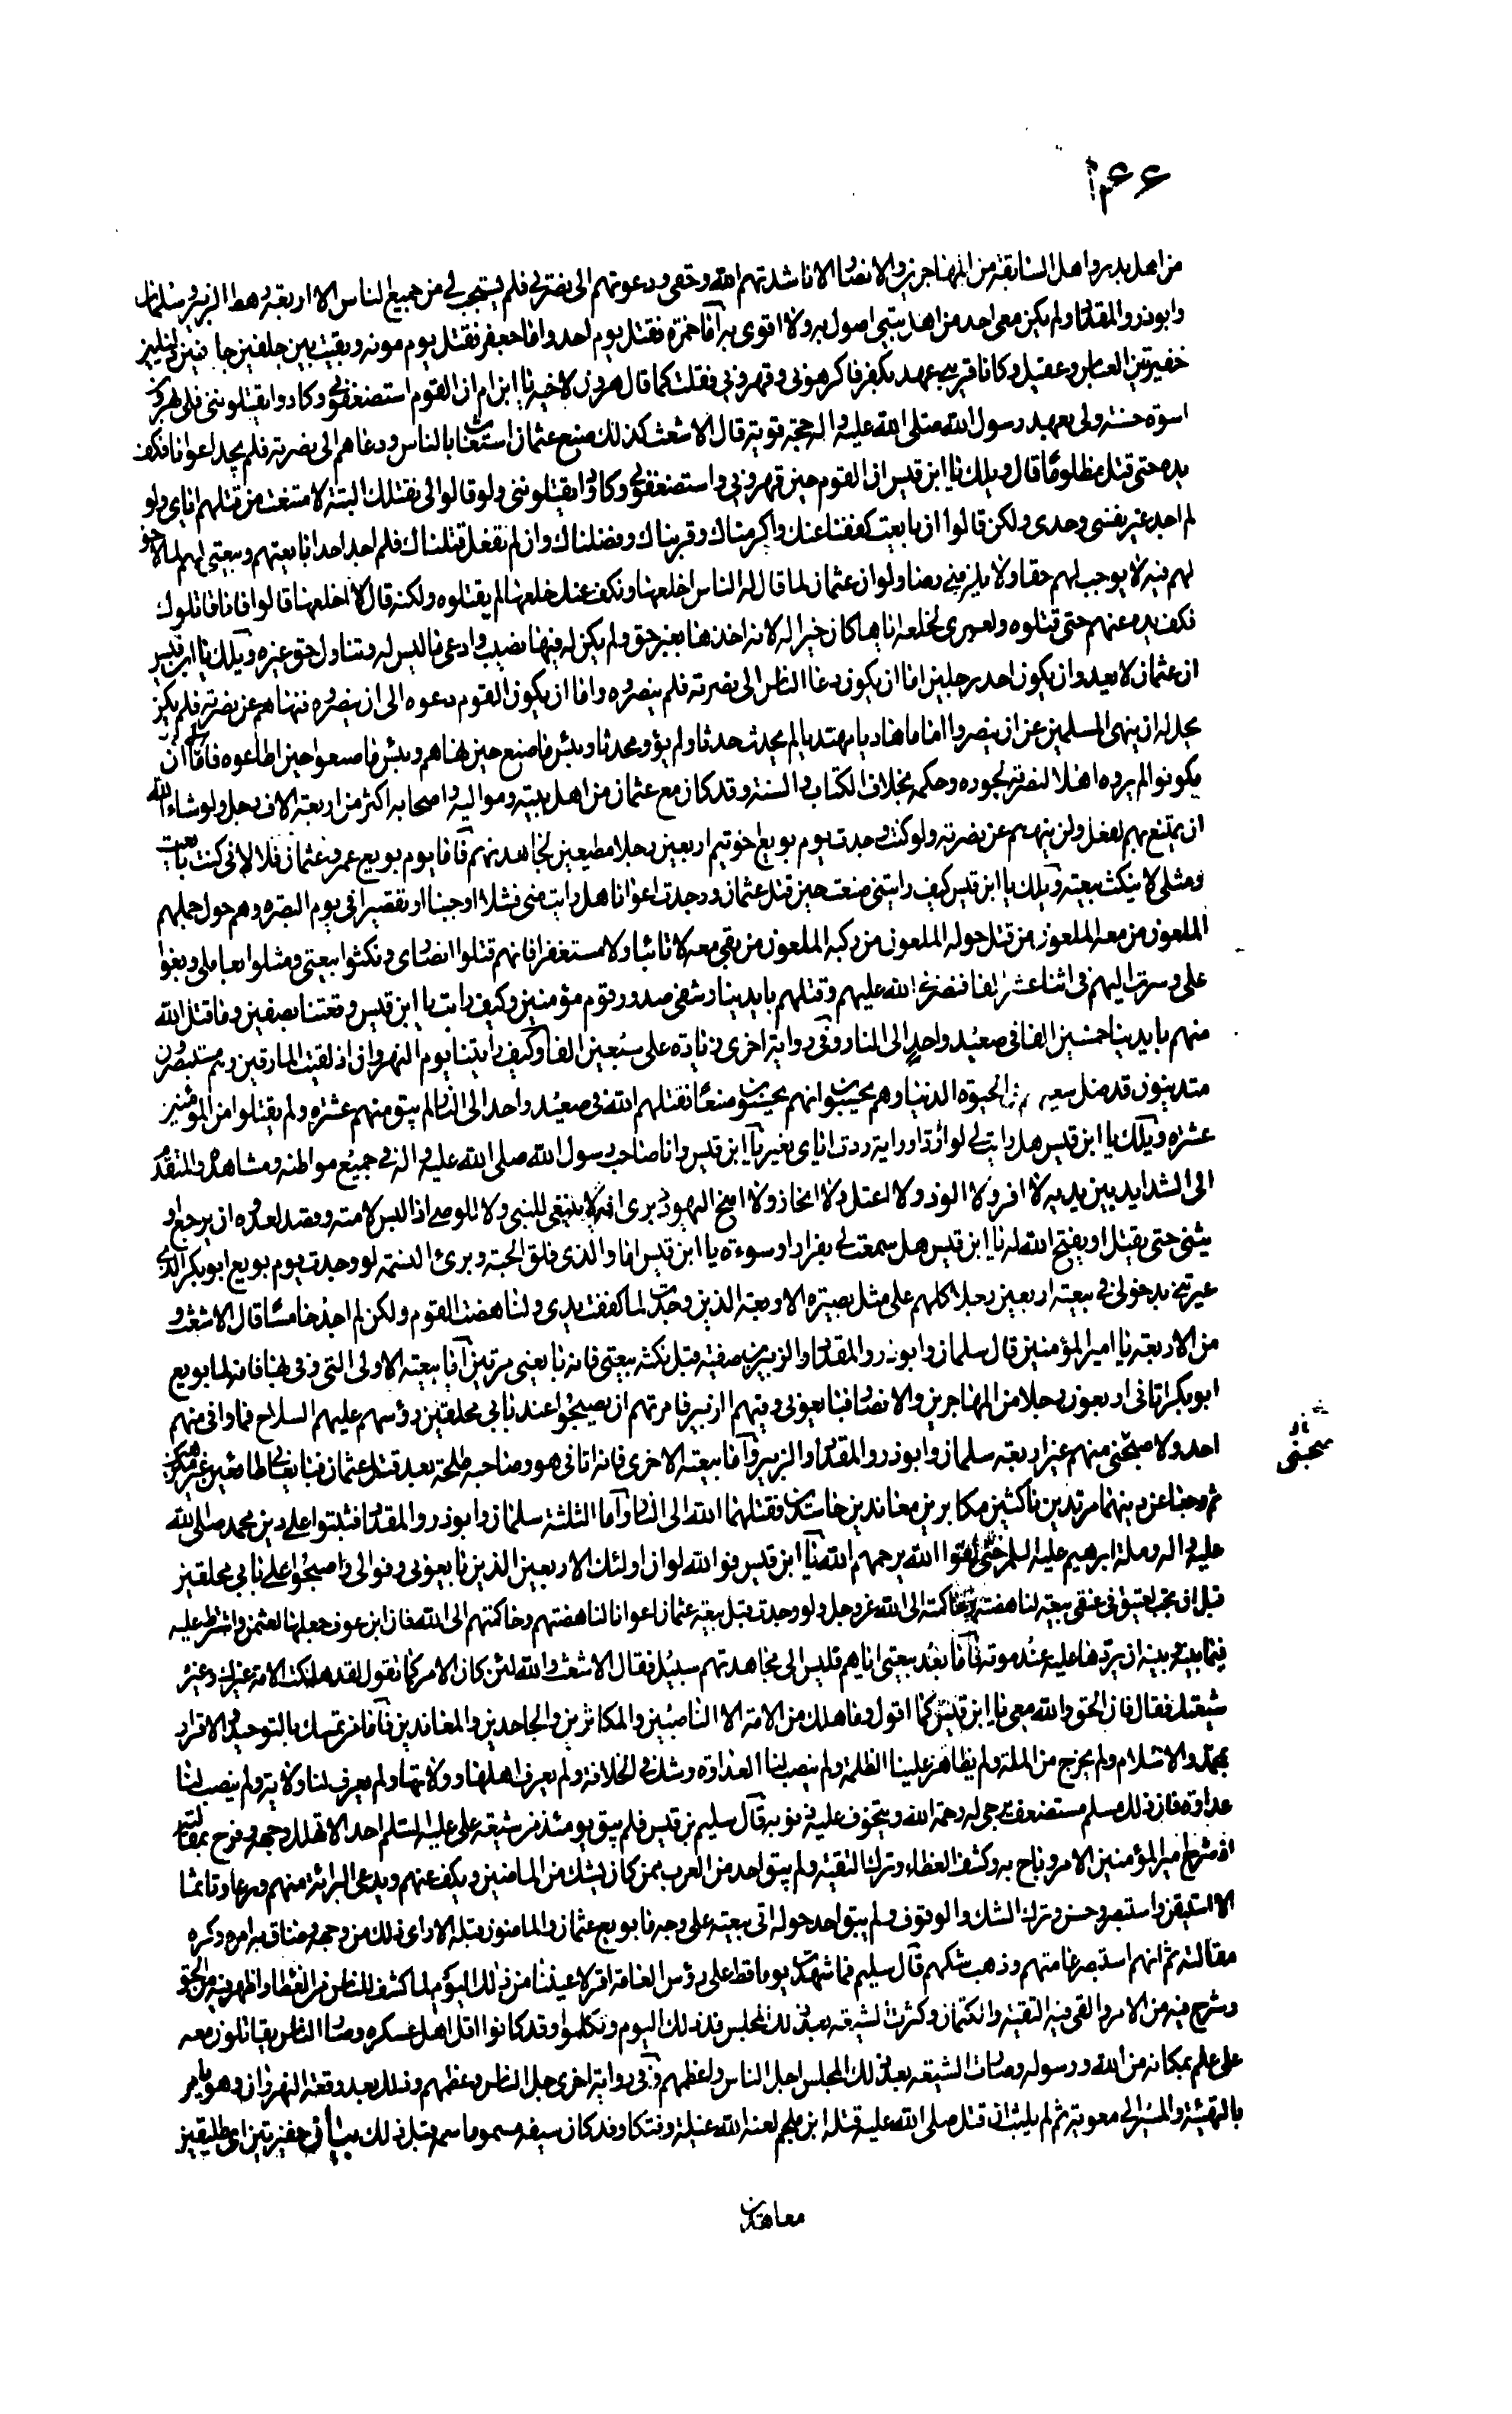 من اهل بدر و اهل السابقة من المهاجرين والانصار الا ناشدتهم الله وحقى ودعوتهم الى نصرتى فلم يستجب لى من جميع الناس الا اربعة رهط الزبير وسلمان
وابوذر والمقداد ولم يكن معى احد من اهل بيتى اصول به ولا اقوى به اما حمزة فقتل يوم احد واما جعفر فقتل يوم موته وبقيت بين جلفين جافيين ذليلين
حقيرين العباس وعقيل وكانا قريبى عهد بكفر فاكرهونى وقهرونى فقلت كما قال هرون لاخيه يا ابن ام ان القوم استضعفونى وكادوا يقتلوننى فلى بهرون
اسوة حسنة ولى بعهد رسول الله صلى الله عليه واله حجة قوية قال الاشعث كذلك صنع عثمان استغاث بالناس ودعاهم الى نصرته فلم يجد اعوانا فكف
يده حتى قتل مظلوما قال ويلك يا ابن قيس ان القوم حين قهرونى واستضعفونى وكادوا يقتلوننى ولو قالوا لى نقتلك البتة لامتنعت من قتلهم اياى ولو
لم اجد غير نفسى وحدى ولكن قالوا ان بايعت كففنا عنك واكرمناك وقربناك وفضلناك وان لم تفعل قتلناك فلم اجد احدا بايعتهم وبيعتى لهم لما لا حق
لهم فيه لا يوجب لهم حقا ولا يلزمنى رضا ولو ان عثمان لما قال له الناس اخلعها ونكف عنك خلعها لم يقتلوه ولكنه قال لا اخلعها قالوا فانا قاتلوك
فكف يده عنهم حتى قتلوه ولعمرى لخلعه اياها كان خيرا له لانه اخذها بغير حق ولم يكن له فيها نصيب وادعى ما ليس له وتناول حق غيره ويلك يا ابن قيس
ان عثمان لا يعدو ان يكون احد رجلين اما ان يكون دعا الناس الى نصرته فلم ينصروه واما ان يكون القوم دعوه الى ان ينصروه فنهاهم عن نصرته فلم يكن
يحل له ان ينهى المسلمين عن ان ينصروا اماما هاديا مهتديا لم يحدث حدثا ولم يؤو محدثا وبئس ما صنع حين نهاهم وبئس ما صنعوا حين اطاعوه فاما ان
يكونوا لم يروه اهلا لنصرته لجوره وحكمه بخلاف الكتاب والسنة وقد كان مع عثمان من اهل بيته ومواليه واصحابه اكثر من اربعة الاف رجل ولو شاء الله
ان يمتنع بهم لفعل ولن ينههم عن نصرته ولو كنت وجدت يوم بويع اخو تيم اربعين رجلا مطيعين لجاهدتهم فاما يوم بويع عمر وعثمان فلا لانى كنت بايعت
ومثلى لا ينكث بيعته ويلك يا ابن قيس كيف رايتنى صنعت حين قتل عثمان ووجدت اعوانا هل رايت منى فشلا او جبنا او تقصيرا فى يوم البصره وهم حول جملهم
الملعون من معه الملعون من قتل حوله الملعون من ركبه الملعون من بقى معه لا تائبا ولا مستغفرا فانهم قتلوا انصارى ونكثوا بيعتى ومثلوا بعاملى وبغوا
على وسرت اليهم فى اثنا عشر الفا فنصرنى الله عليهم وقتلهم بايدينا وشفى صدور قوم مؤمنين وكيف رايت يا ابن قيس وقعتنا بصفين وما قتل الله
منهم بايدينا خمسين الفا فى صعيد واحد الى النار وفى رواية اخرى زيادة على سبعين الفا وكيف رايتنا يوم النهروان اذ لقيت المارقين وهم مستبصرون
متدينون قد ضل سعيهم فى الحيوة الدنيا وهم يحسبون انهم يحسنون صنعا فقتلهم الله فى صعيد واحد الى النار لم يبق منهم عشرة ولم يقتلوا من المؤمنين
عشرة ويلك يا ابن قيس هل رايت لى لواء رد او راية ردت اياى تعير يا ابن قيس وانا صاحب رسول الله صلى الله عليه واله فى جميع مواطنه ومشاهده والمتقدم
الى الشدايد بين يديه لا افر ولا الوذ ولا اعتل ولا انحاز ولا امنح اليهود دبرى انه لا ينبغى للنبى ولا للوصى اذا لبس لامته وقصد لعدوه ان يرجع او
ينثنى حتى يقتل او يفتح الله له يا ابن قيس هل سمعت لى بفرار او سوءة يا ابن قيس اما والذى فلق الحبة وبرئ النسمة لو وجدت يوم بويع ابو بكر الذى
عيرتنى بدخولى فى بيعته اربعين رجلا كلهم على مثل بصيرة الاربعة الذين وجدت لما كففت يدى ولناهضت القوم ولكن لم اجد خامسا قال الاشعث و
من الاربعة يا امير المؤمنين قال سلمان وابوذر والمقداد والزبير بن صفية قبل نكثه بيعتى فانه بايعنى مرتين اما بيعته الاولى التى وفى بها فانه لما بويع
ابو بكر اتانى اربعون رجلا من المهاجرين والانصار فبايعونى وفيهم الزبير فامرتهم ان يصبحوا عند بابى محلقين رؤسهم عليهم السلاح فما وافى منهم
احد ولا صبحنى منهم غير اربعة سلمان وابوذر والمقداد والزبير واما بيعته الاخرى فانه اتانى هو وصاحبه طلحة بعد قتل عثمان فبايعانى طائعين غير مكرهين
ثم رجعا عن دينهما مرتدين ناكثين مكابرين معاندين حاسدين فقتلهما الله الى النار واما الثلثة سلمان وابوذر والمقداد فثبتوا على دين محمد صلى الله
عليه واله وملة ابرهيم عليه السلام حتى لقوا الله يرحمهم الله يا ابن قيس فوالله لو ان اولئك الاربعين الذين بايعونى وفوا لى واصبحوا على بابى محلقين
قبل ان تجب لعتيق فى عنقى بيعة لناهضته وحاكمته الى الله عز وجل ولو وجدت قبل بيعة عثمان اعوانا لناهضتهم وحاكمتهم الى الله فان ابن عوف جعلها لعثمن واشترط عليه
فيما بينه وبينه ان يردها عليه عند موته فاما بعد بيعتى اياهم فليس الى مجاهدتهم سبيل فقال الاشعث والله لئن كان الامر كما تقول لقد هلكت الامة غيرك وغير
شيعتك فقال فان الحق والله معى يا ابن قيس كما اقول وما هلك من الامة الا الناصبين والمكاثرين والجاحدين والمعاندين فاما من تمسك بالتوحيد والاقرار
بمحمد والاسلام ولم يخرج من الملة ولم يظاهر علينا الظلمة ولم ينصب لنا العداوة وشك فى الخلافة ولم يعرف اهلها وولاتها ولم يعرف لنا ولاية ولم ينصب لنا
عداوة فان ذلك مسلم مستضعف يرجى له رحمة الله ويتخوف عليه ذنوبه قال سليم بن قيس فلم يبق يومئذ من شيعة على عليه السلم احد الا تهلل وجهه وفرح بمقالته
اذ شرح امير المؤمنين الامر وباح به وكشف الغطاء وترك التقية ولم يبق احد من العرب ممن كان يشك فى الماضين ويكف عنهم ويدع البرائة منهم ورعا وتاثما
الا استيقن واستبصر وحسن وترك الشك والوقوف ولم يبق احد حوله اتى بيعته على وجه ما بويع عثمان والماضون قبله الا راى ذلك من وجهه وضاق به امره وكره
مقالته ثم انهم استبصر عامتهم وذهب شكهم قال سليم فما شهدت يوما قط على رؤس العامة اقر لاعيننا من ذلك اليوم لما كشف للناس من الغطا واظهر فيه من الحق
وشرح فيه من الامر والقى فيه التقية والكتمان وكثرت الشيعة بعد ذلك المجلس فى ذلك اليوم وتكلموا وقد كانوا اقل اهل عسكره وصار الناس يقاتلون معه
على علم بمكانه من الله ورسوله وصارت الشيعة بعد ذلك المجلس اجل الناس واعظمهم وفى رواية اخرى جل الناس وعظمهم وذلك بعد وقعة النهروان وهو يامر
بالتهيئة والمسير الى معوية ثم لم يلبث ان قتل صلى الله عليه قتله ابن ملجم لعنه الله غيلة وفتكا وقد كان سيفه مسموما سمه قبل ذلك بيان خفيرتين اى طليقين
معاهدين